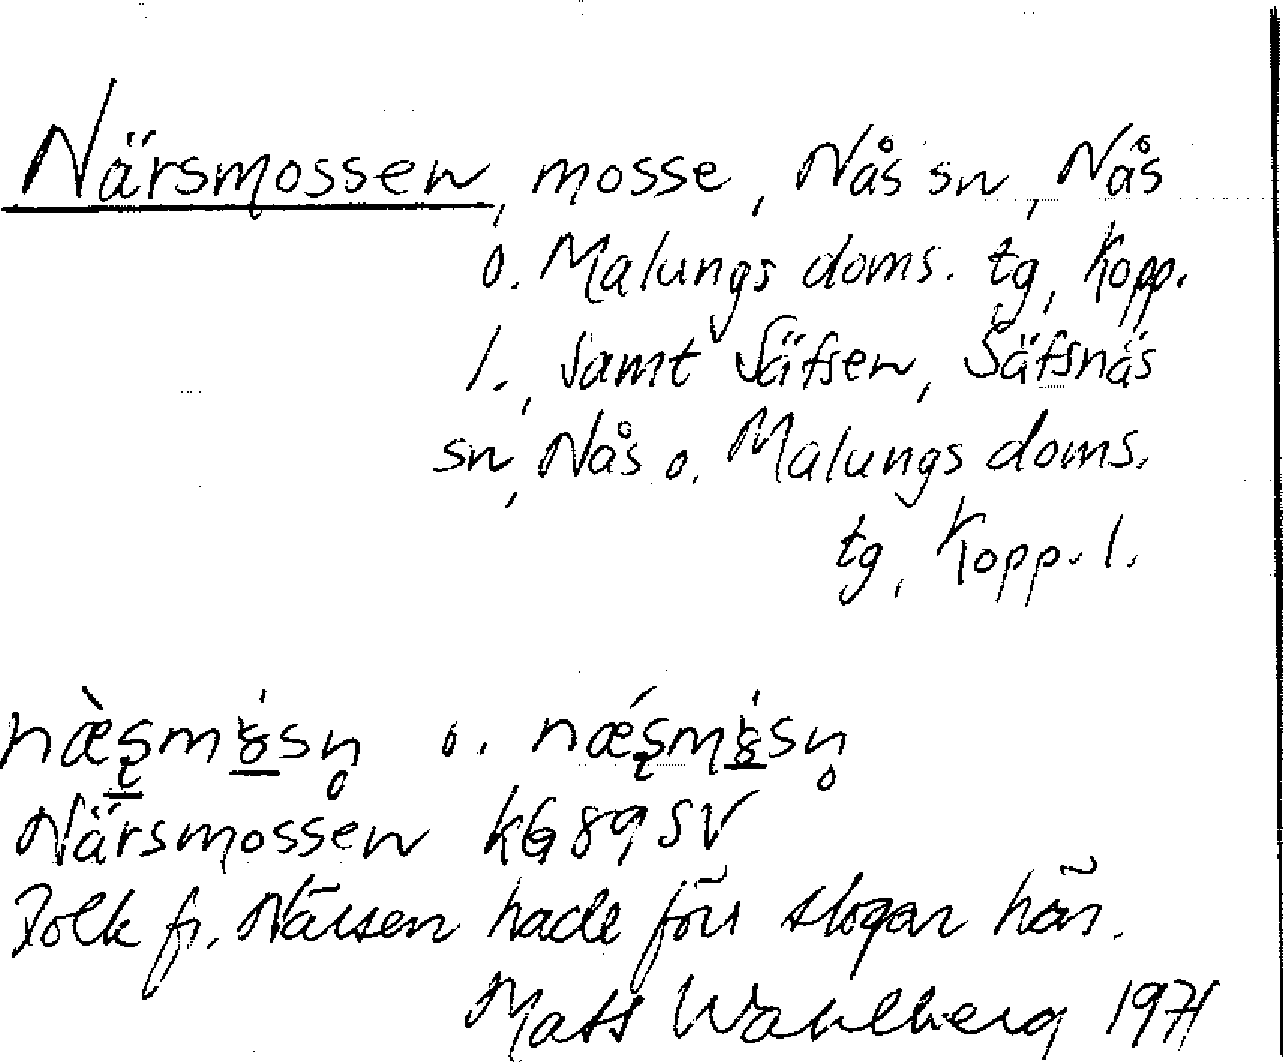 Närsmossen, mosse, Nås sn, Nås
o. Malungs doms. tg, Kopp.
l., samt Säfsen, Säfsnäs
sn, Nås o. Malungs doms.
tg, Kopp. l.
o.
Närsmossen KG 89 SV
Folk fr. Närsen hade förr slogar här.
Mats Wahlberg 1971